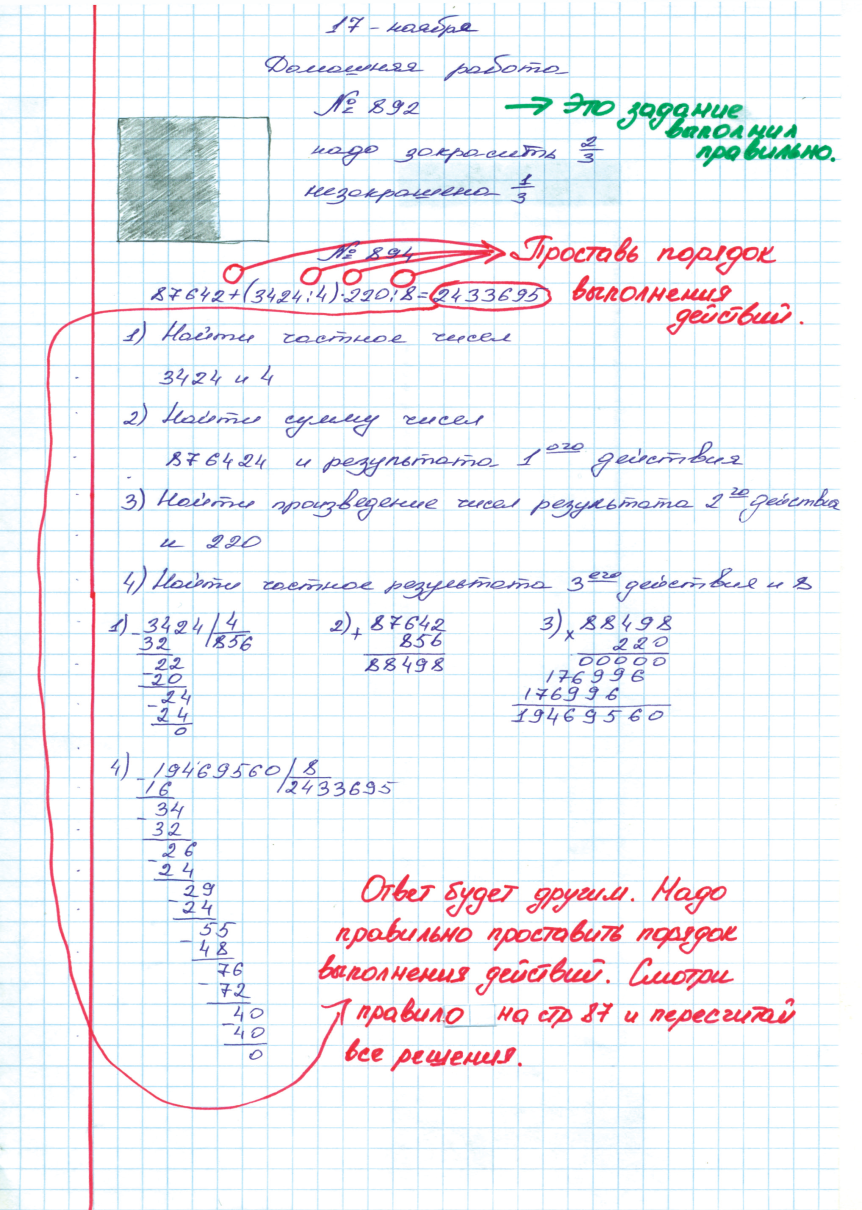 17 - ноября
Домашняя работа
№ 892
→ Это задание
выполнил
правильно.
надо закрасить 2/3
незакрашена 1/3
№ 894
Проставь порядок
выполнения
действий.
87642+(3424:4)·220:8=2433695
1) Найти частное чисел
3424 и 4
2) Найти сумму чисел
876424 и результата 1ого действия
3) Найти произведение чисел результата 2го действия
и 220
4) Найти частное результата 3его действия и 8
1) 3424 | 4
856
- 32
22
- 20
24
- 24
0
2) + 87642
856
88498
3) x 88498
220
00000
176996
176996
19469560
4) - 19469560 | 8
16 2433695
- 34
32
- 26
24
- 29
24
- 55
48
- 76
72
- 40
40
0
Ответ будет другим. Надо
правильно проставить порядок
выполнения действий. Смотри
правило на стр 87 и пересчитай
все решения.